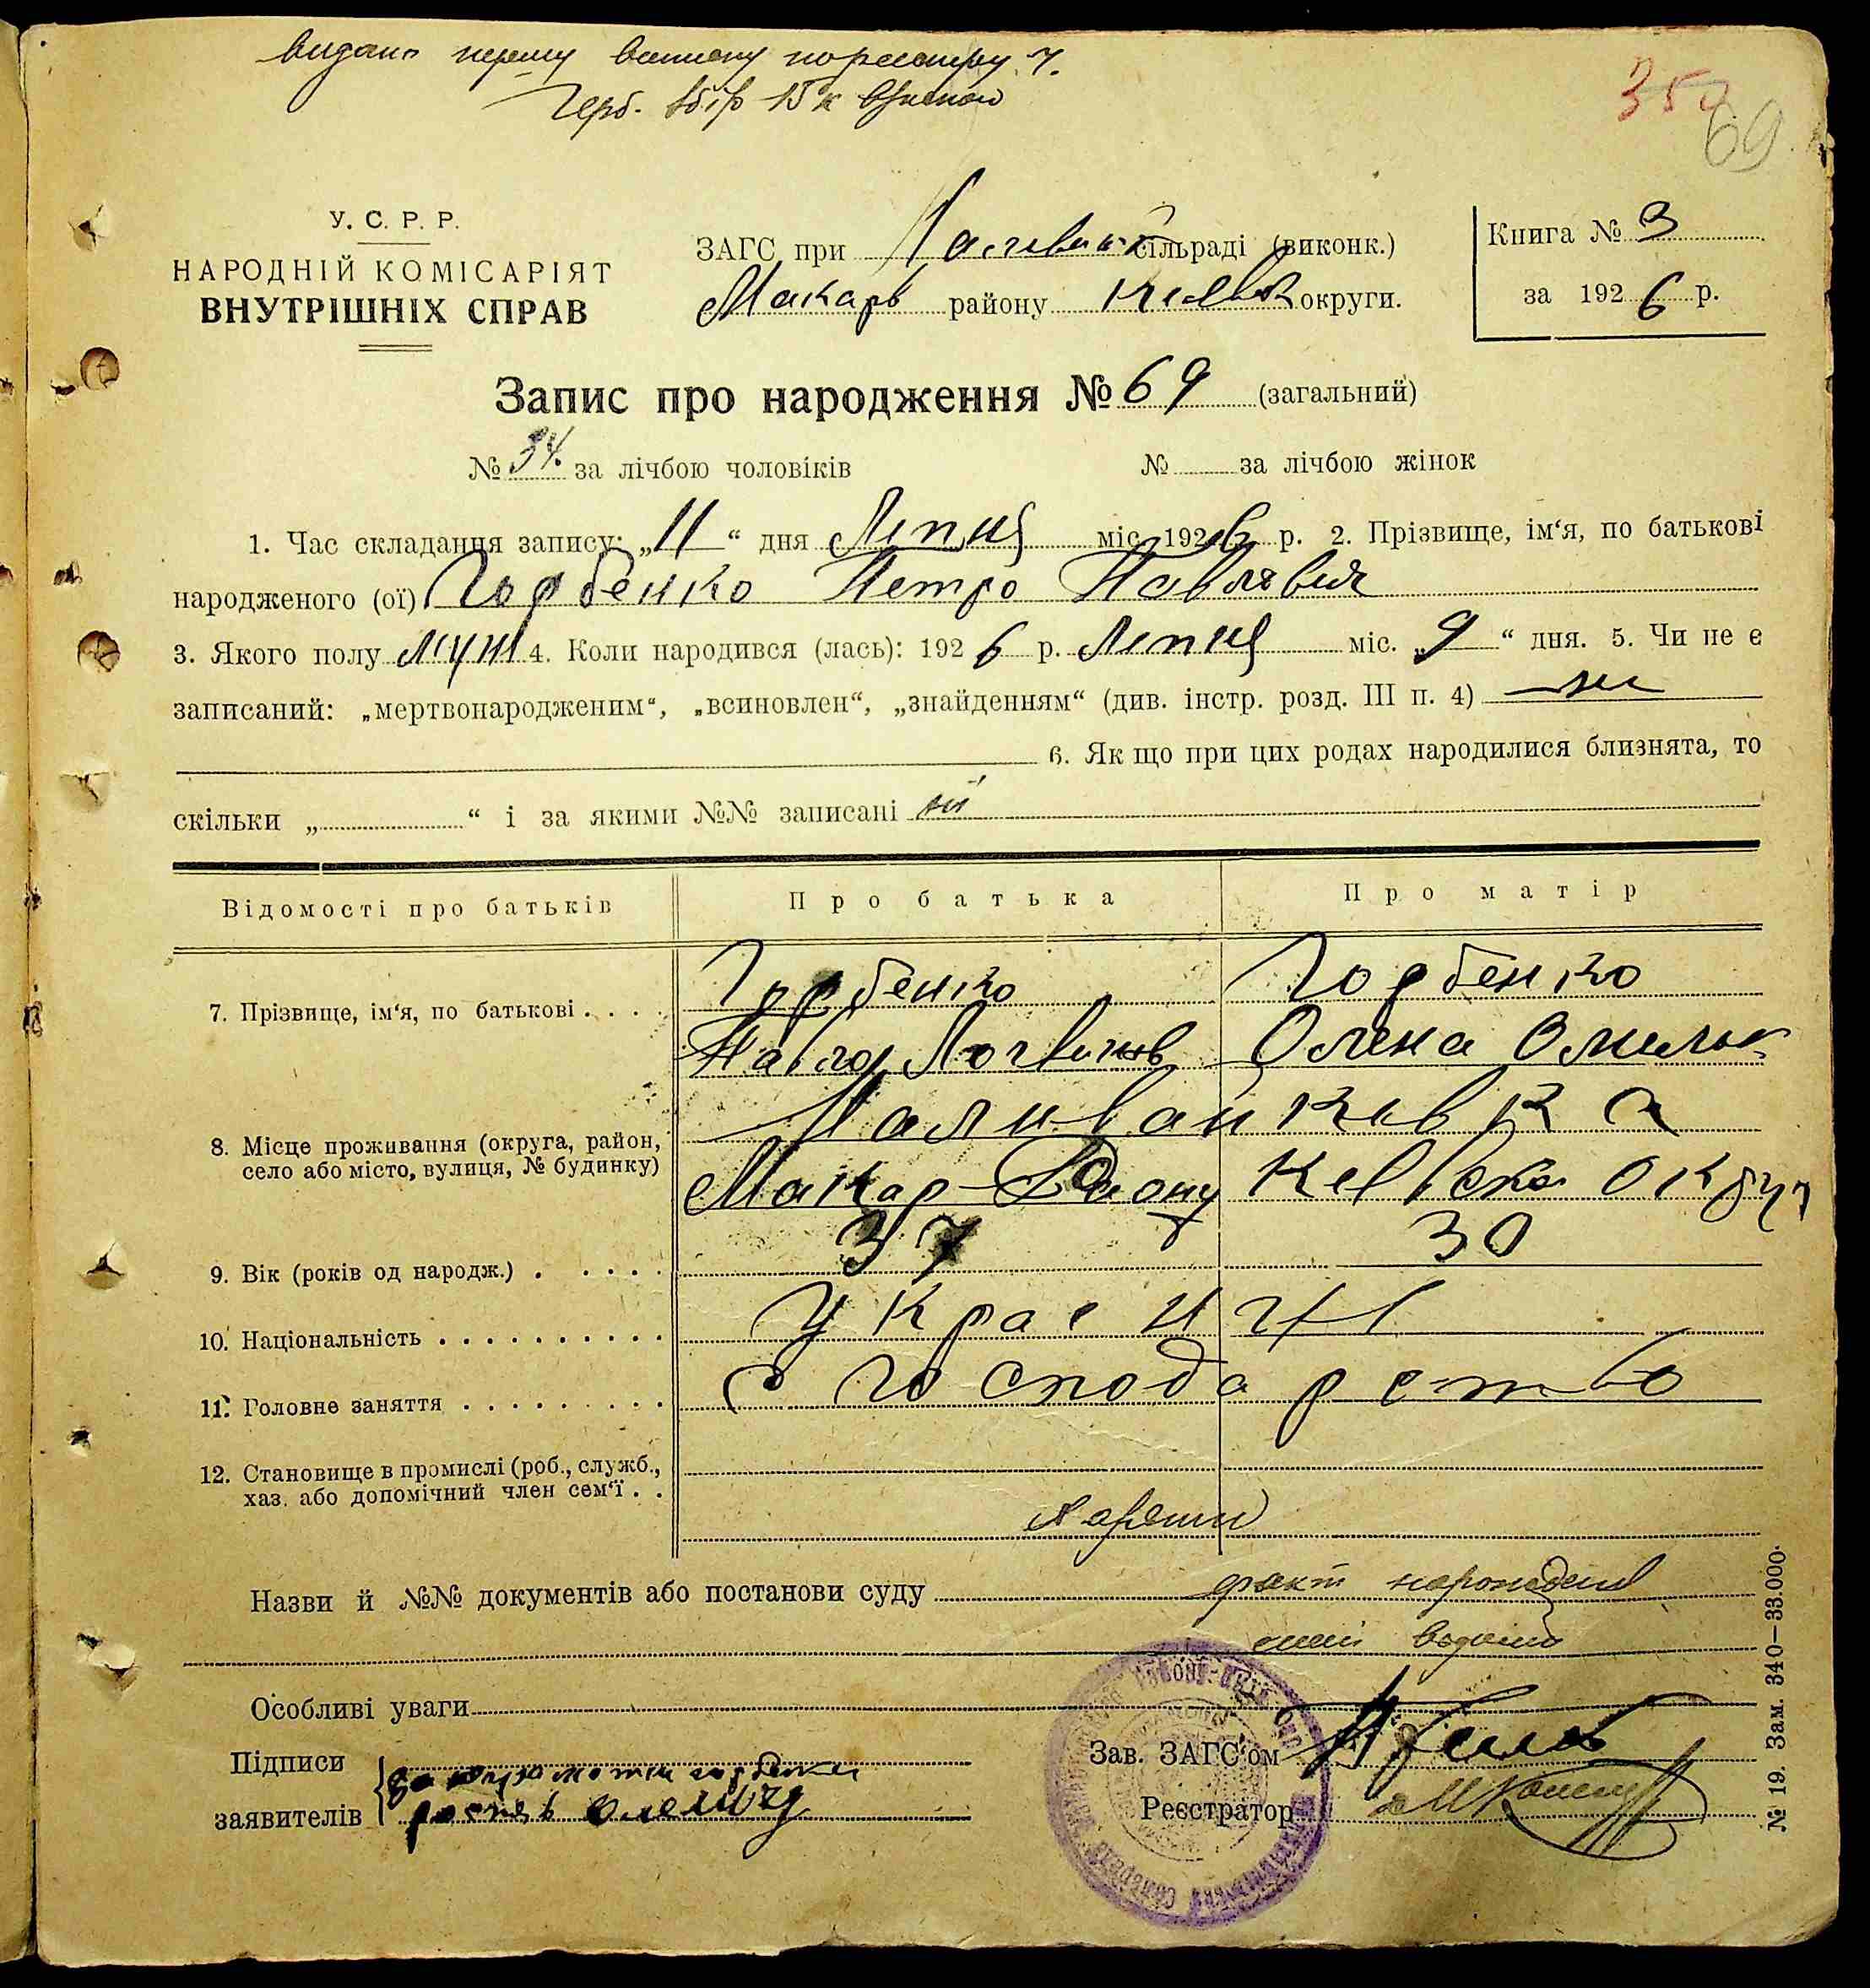 видано першу виписку
Герб. збір 15 к
354
69.
У. С. Р. Р.
НАРОДНІЙ КОМІСАРІЯТ
ВНУТРІШНІХ СПРАВ
ЗАГС при сільраді (виконк.)
Макарів району Київськ округи.
Книга № 3
за 1926 р.
Запис про народження № 69 (загальний)
№ 34. за лічбою чоловіків № за лічбою жінок
1. Час складання запису: „11“ дня Липця міс. 1926 р. 2. Прізвище, ім‘я, по батькові
народженого (ої) Горбенко Петро Павлович
3. Якого полу муж 4. Коли народився (лась): 1926 р. Липця міс. „9“ дня. 5. Чи не є
записаний: „мертвонародженим“, „всиновлен“, „знайденням“ (див. інстр. розд. III п. 4) ні
6. Як що при цих родах народилися близнята, то
скільки „ “ і за якими №№ записані ні
Відомості про батьків Про батька Про матір
7. Прізвище, ім‘я, по батькові . . . . Горбенко Горбенко
Павло Логвинов Олена Омельк
8. Місце проживання (округа, район, село або місто, вулиця, № будинку) Наливайківка
Макар Району Київська округ
9. Вік (років од народж.) . . . . . 37 30
10. Національність . . . . . . . . . . Україн
11. Головне заняття . . . . . . . . . С господарство
12. Становище в промислі (роб., служб.,
хаз. або допомічний член сем‘ї . .
Назви й №№ документів або постанови суду факт народження
Особливі уваги
Підписи
заявителів
Зав. ЗАГС‘ом
Реєстратор
№ 19. Зам. 340—33.000.